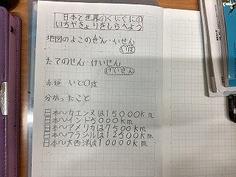 日本と世界のくにぐにの
いちやきょりをしらべよう
地図のよこのせん・いせん
いど
たてのせん・けいせん
けいせん
赤道 いど0度
分かったこと
日本〜カエンヌは15000km
日本〜インド5000km
日本〜アメリカは7500km
日本〜ブラジルは12500km
日本〜大西洋は10000km